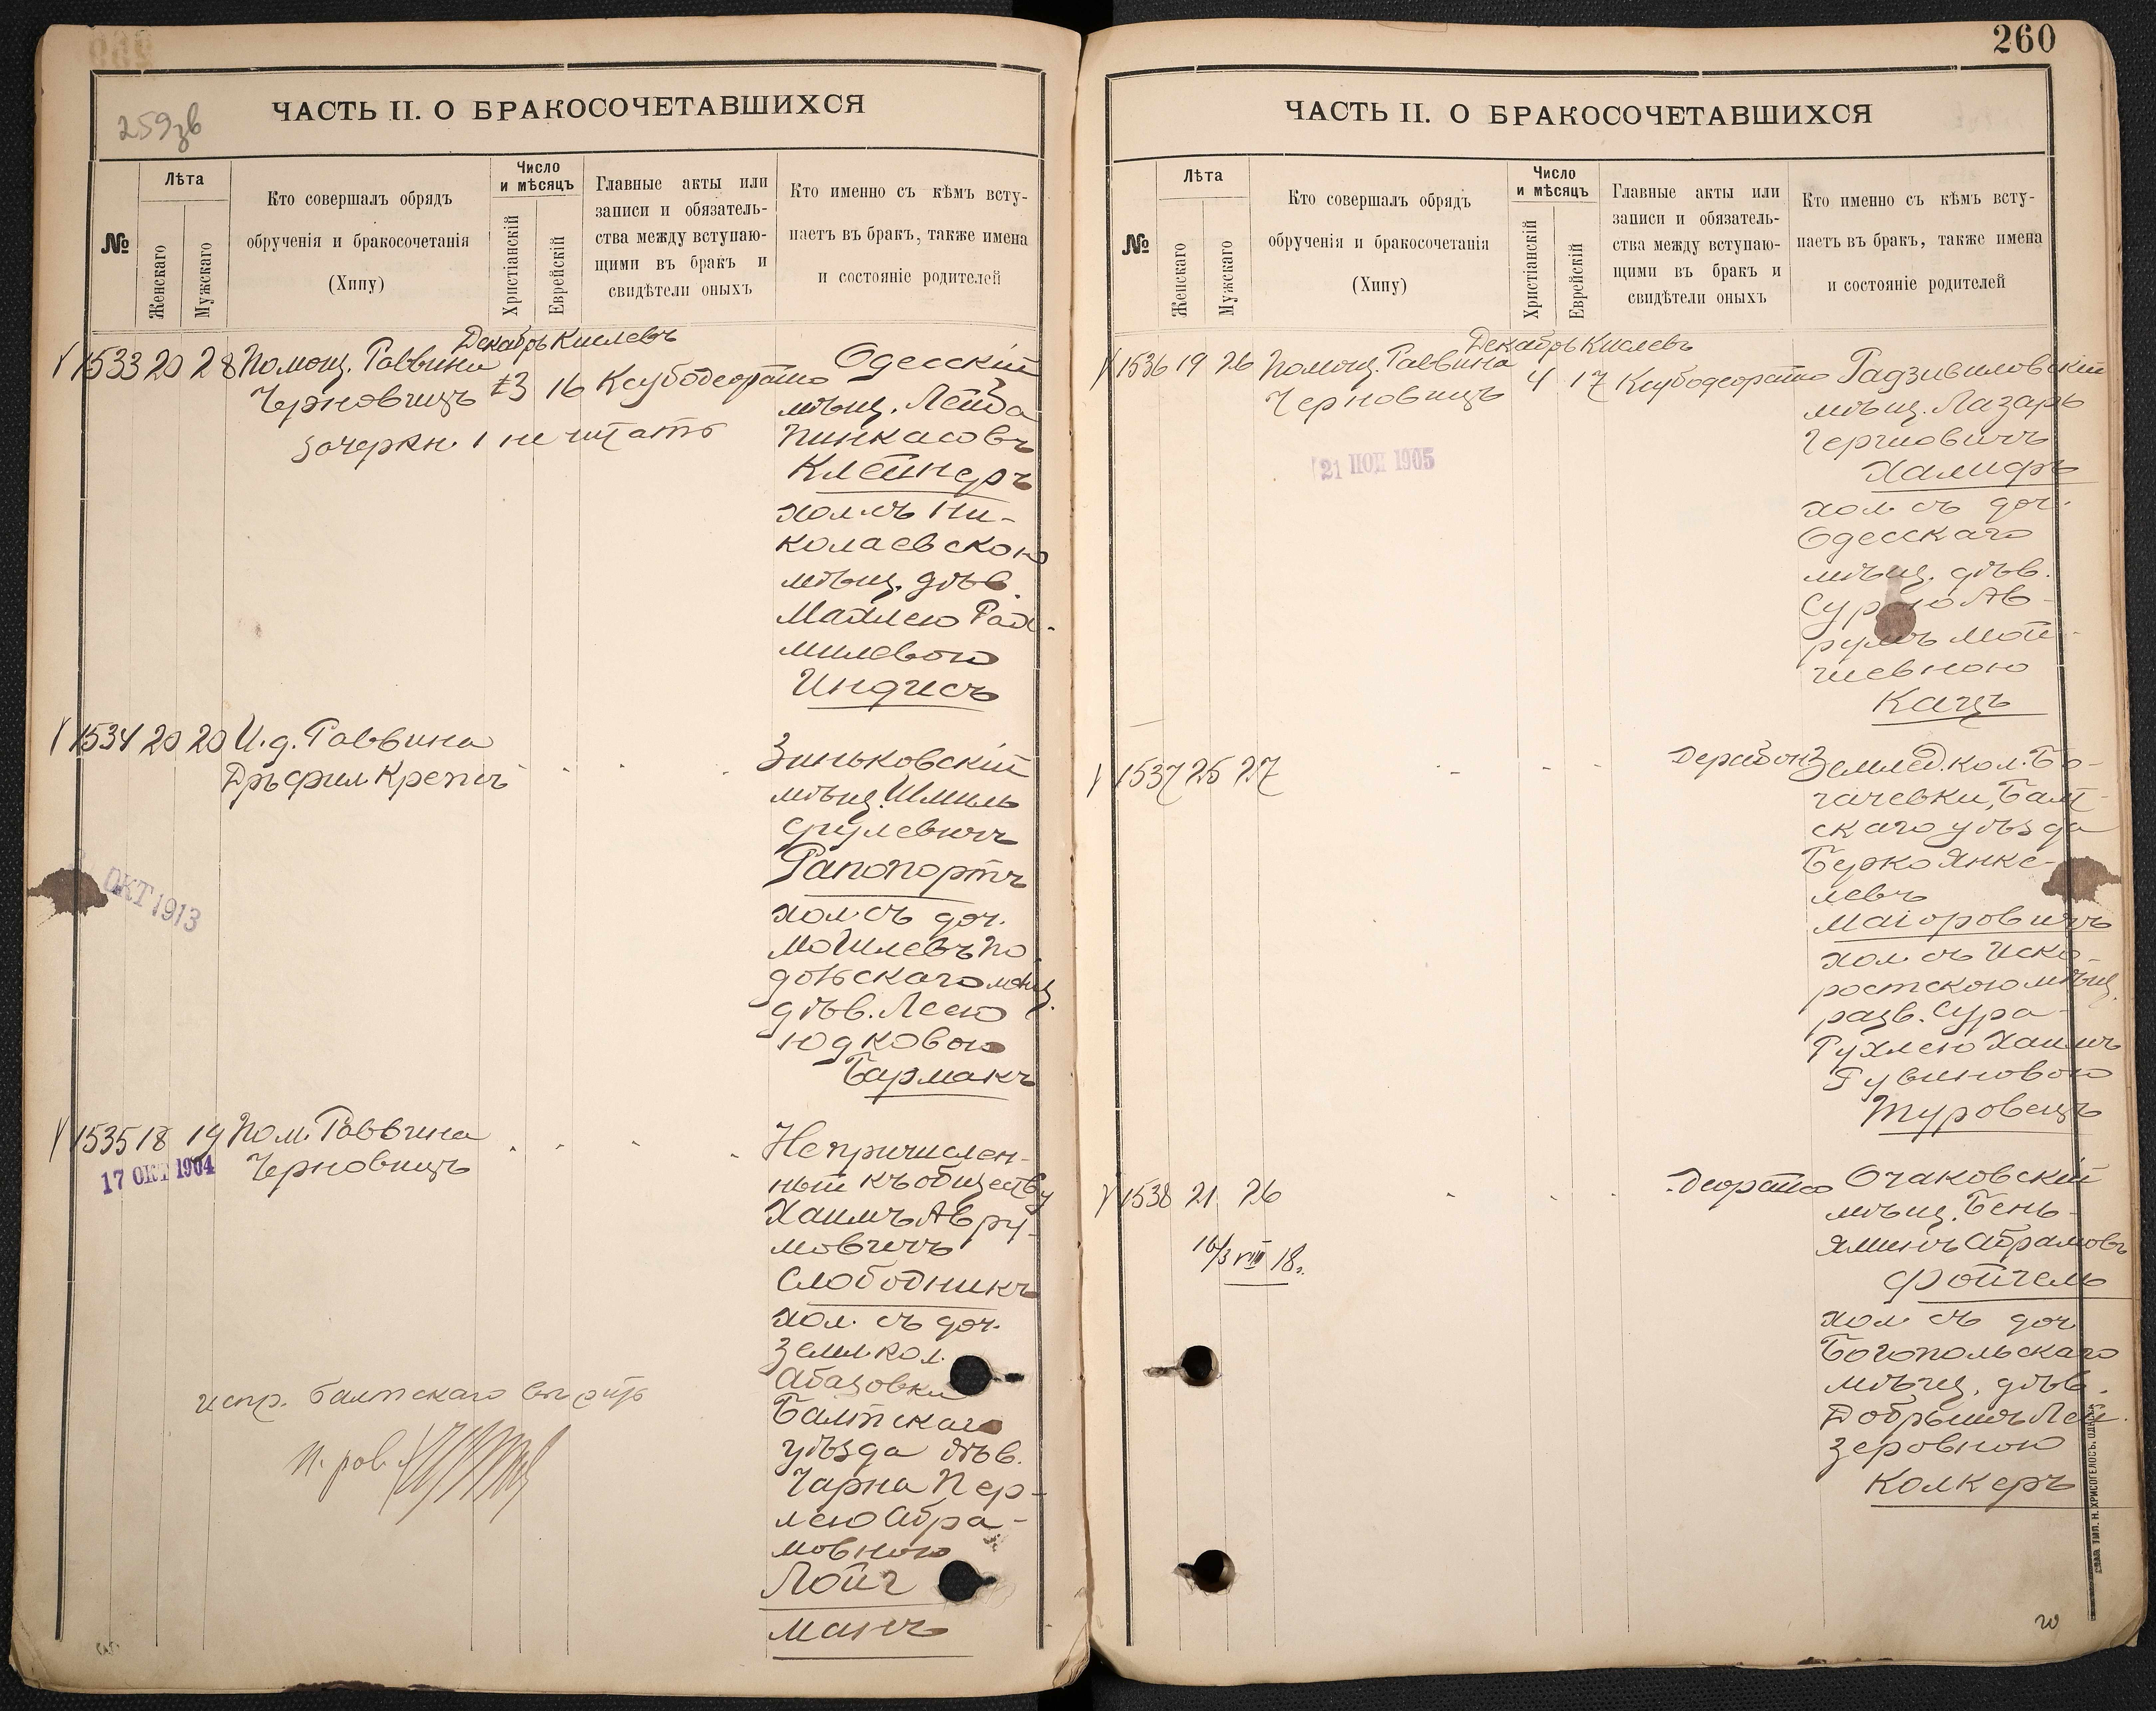 259зв
ЧАСТЬ II. О БРАКОСОЧЕТАВШИХСЯ
№
Лѣта
Женскаго
Мужскаго
Кто совершалъ обрядъ
обрученія и бракосочетанія
(Хипу)
Число
и мѣсяцъ
Христіанскій
Еврейскій
Главные акты или
записи и обязатель-
ства между вступаю-
щими въ бракъ и
свидѣтели оныхъ
Кто именно съ кѣмъ всту-
паетъ въ бракъ, также имена
и состояніе родителей
Декабрь Кислевъ
1533 20 28 Помощ. Раввина
Черновицъ 3 16 Ксубодеорайсо
Зачеркн. 1 не читать
Одесскій
мѣщ. Лейба
Пинкасовъ
Клейнеръ
хол. съ Ни-
колаевскою
мѣщ. дѣв.
Маллею Рах-
милевою
Индисъ
1534 20 20 И. д. Раввина
Дръ фил Крепсъ
Зиньковскій
мѣщ. Шмиль
Срулевичъ
Рапопортъ
хол. съ доч.
Могилевъ По-
дольскаго мѣщ.
дѣв. Леею
Юдковою
Бармакъ
ОКТ 1913
1535 18 19 Пом. Раввина
Черновицъ
17 ОКТ 1904
Непричислен-
ный къ обществу
Хаимъ Авру-
мовичъ
Слободникъ
хол. съ доч.
Земл. кол.
Абазовки
Балтскаго
уѣзда дѣв.
Чарна Пер-
лею Абра-
мовною
Лойг
манъ
испр. балтскаго
260
ЧАСТЬ II. О БРАКОСОЧЕТАВШИХСЯ
№
Лѣта
Женскаго
Мужскаго
Кто совершалъ обрядъ
обрученія и бракосочетанія
(Хипу)
Число
и мѣсяцъ
Христіанскій
Еврейскій
Главные акты или
записи и обязатель-
ства между вступаю-
щими въ бракъ и
свидѣтели оныхъ
Кто именно съ кѣмъ всту-
паетъ въ бракъ, также имена
и состояніе родителей
Декабрь Кислевъ
1536 19 26 Помощ. Раввина
Черновицъ 4 17 Ксубодеорайсо
21 НОЯ 1905
Радзивиловскій
мѣщ. Лазарь
Гершовичъ
Халифъ
хол. съ доч.
Одесскаго
мѣщ. дѣв.
Сурою Ав-
румъ Мой-
шевною
Кацъ
1537 25 27
Дерабонз
Земл. кол. Бо-
гачевки, Балт-
скаго уѣзда
Берко Янке-
левъ
Маіоровичъ
хол. съ Иско-
ростскою мѣщ.
разв. Сура-
Рухлею Хаимъ
Рувиновою
Туровецъ
1538 21 26
Деорайсо
16/3 VIII 18.
Очаковскій
мѣщ. Бень-
яминъ Абрамовъ
Фойгель
хол. съ доч
Богопольскаго
мѣщ. дѣв.
Добрышъ Лей-
зеровною
Колкеръ
ТИП. Н. ХРИСОГЕЛОСЪ. ОДЕССА